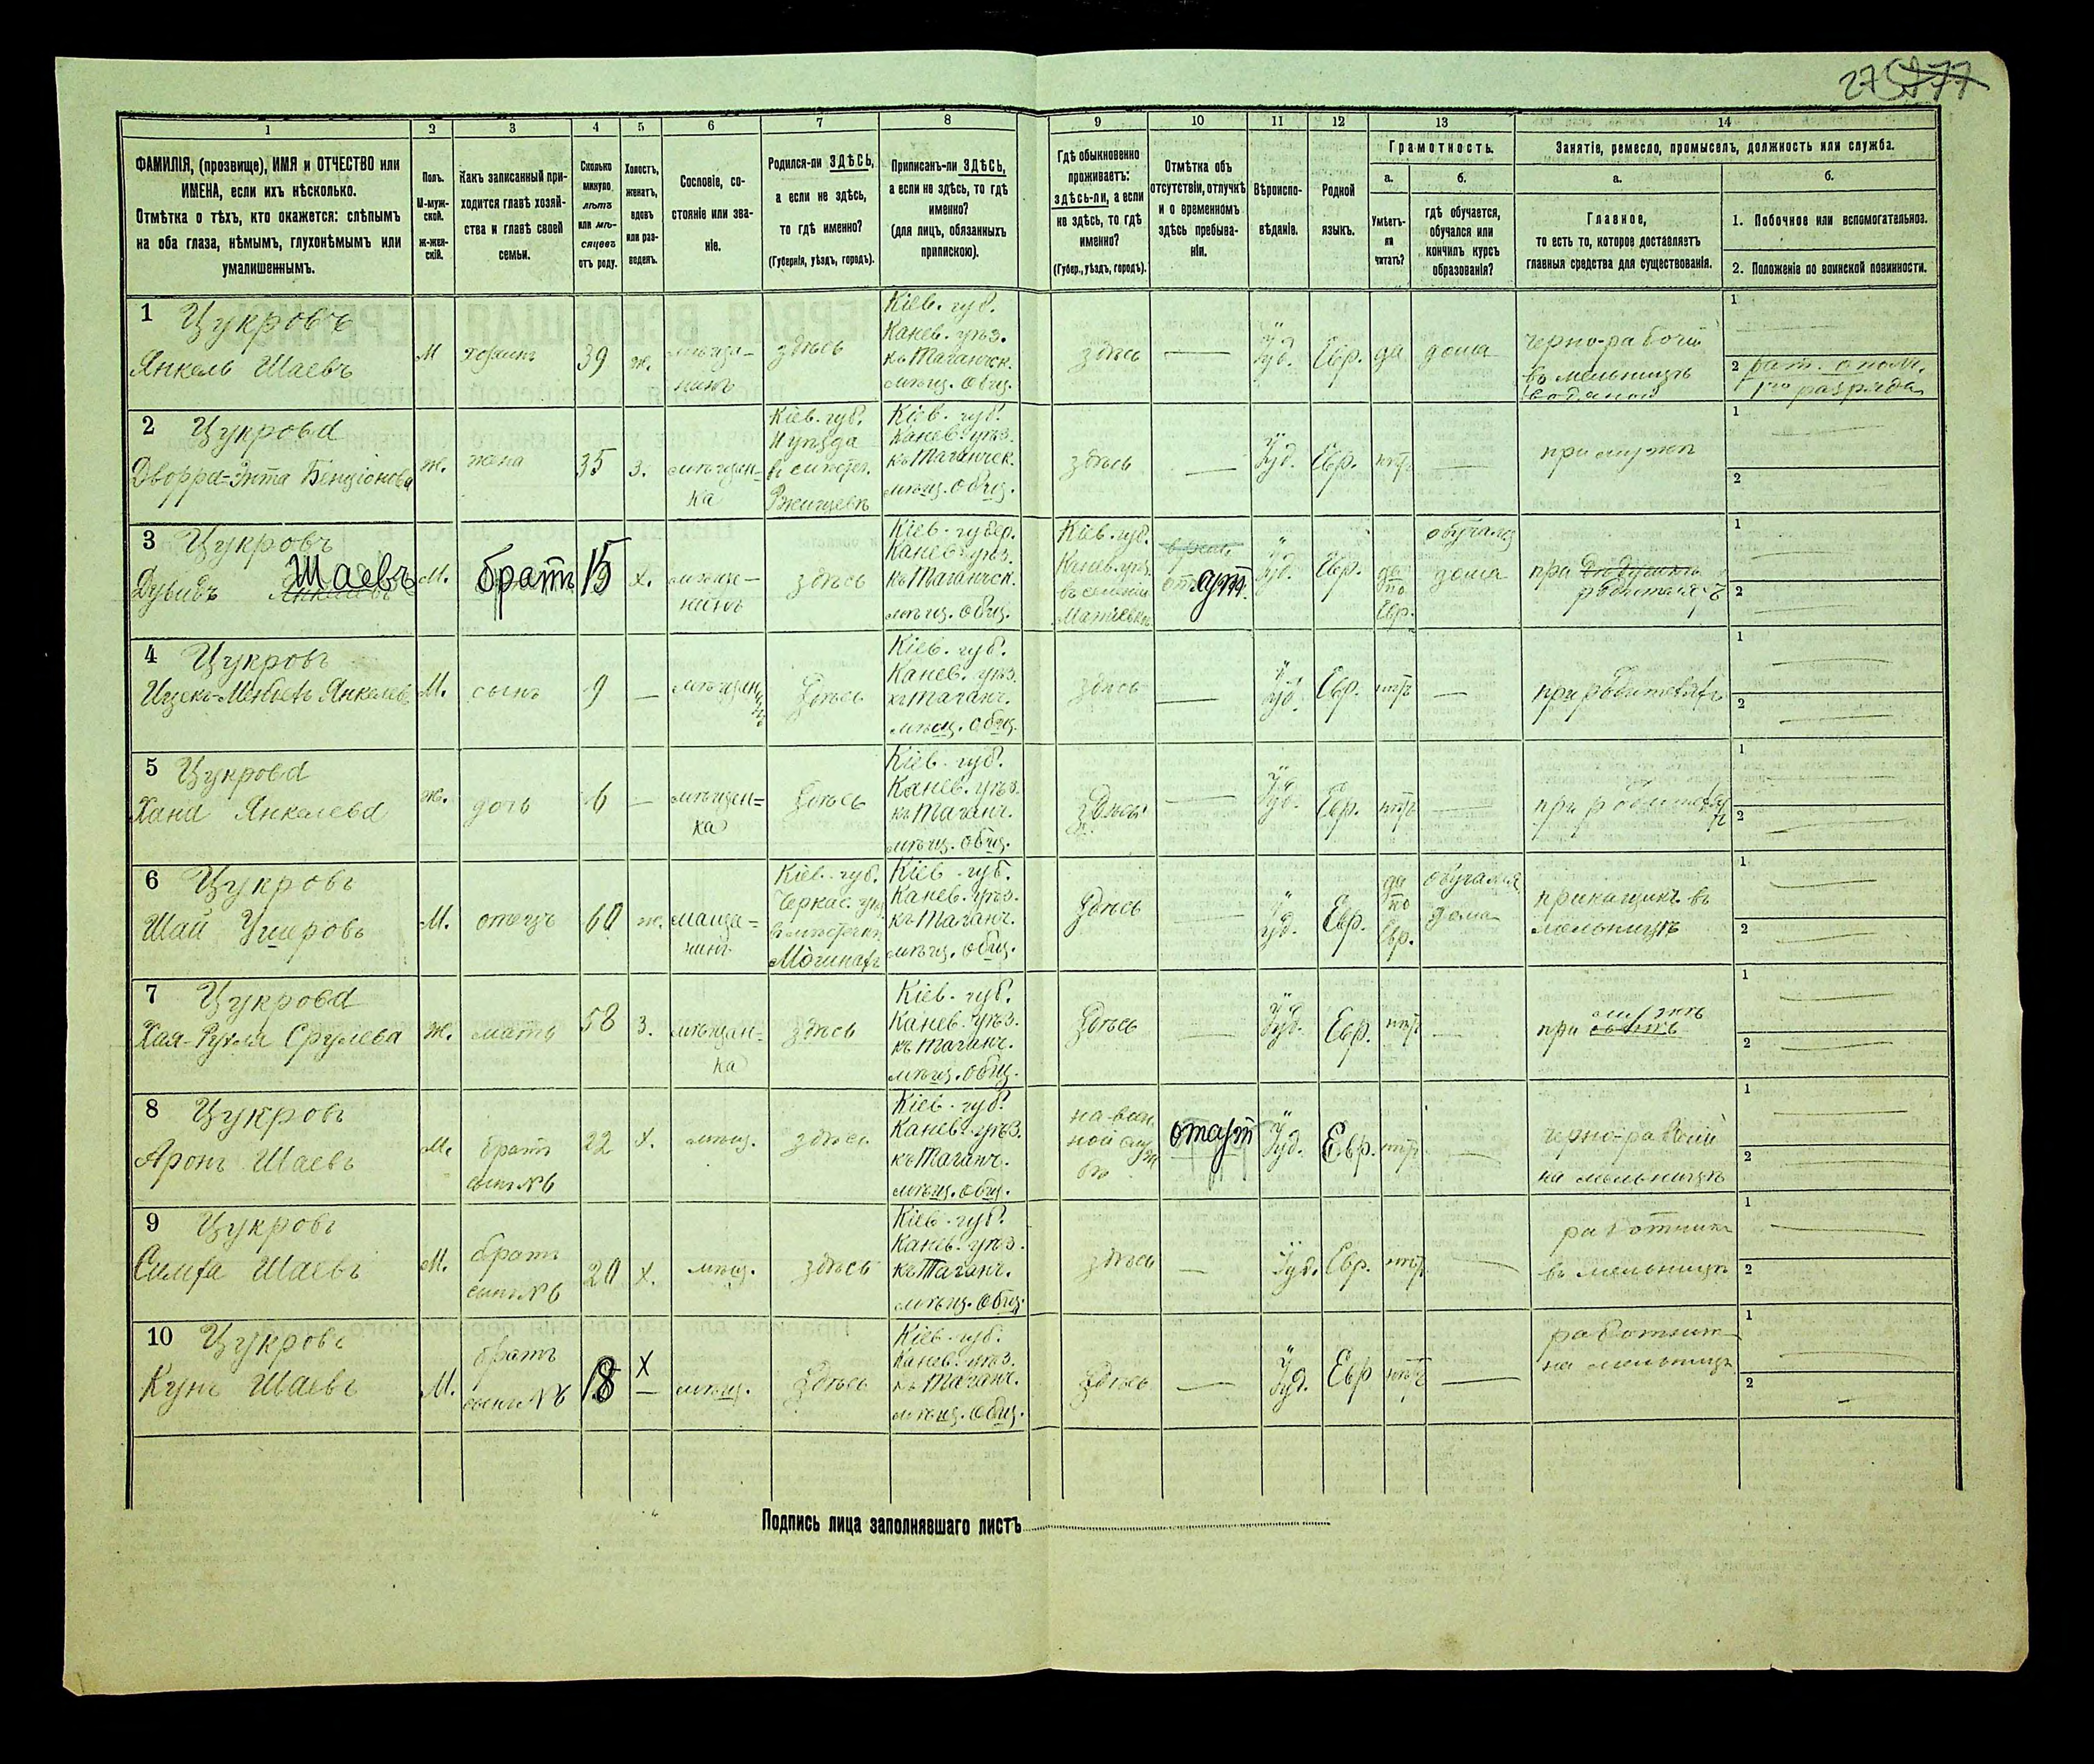 27
1 2 3 4 5 6 7 8 9 10 11 12 13 14
ФАМИЛІЯ, (прозвище), ИМЯ и ОТЧЕСТВО или
ИМЕНА, если ихъ нѣсколько.
Отмѣтка о тѣхъ, кто окажется: слѣпымъ
на оба глаза, нѣмымъ, глухонѣмымъ или
умалишеннымъ.
Полъ.
М-муж-
ской.
Ж-жен-
скій.
Какъ записанный при-
ходится главѣ хозяй-
ства и главѣ своей
семьи.
Сколько
минуло
лѣтъ
или мѣ-
сяцевъ
отъ роду.
Холостъ,
женатъ,
вдовъ
или раз-
веденъ.
Сословіе, со-
стояніе или зва-
ніе.
Родился-ли ЗДѢСЬ,
а если не здѣсь,
то гдѣ именно?
(Губернія, уѣздъ, городъ).
Приписанъ-ли ЗДѢСЬ,
а если не здѣсь, то гдѣ
именно?
(для лицъ, обязанныхъ
припискою).
Гдѣ обыкновенно
проживаетъ:
ЗДѢСЬ-ли, а если
не здѣсь, то гдѣ
именно?
(Губер., уѣздъ, городъ).
Отмѣтка объ
отсутствіи, отлучкѣ
и о временномъ
здѣсь пребыва-
ніи.
Вѣроиспо-
вѣданіе.
Родной
языкъ.
Грамотность.
а.
Умѣетъ-
ли
читать?
б.
гдѣ обучается,
обучался или
кончилъ курсъ
образованія?
Занятіе, ремесло, промыселъ, должность или служба.
а.
Главное,
то есть то, которое доставляетъ
главныя средства для существованія.
б.
1. Побочное или вспомогательное.
2. Положеніе по воинской повинности.
1 Цукровъ
Янкель Шаевъ
М
хозяинъ
39
ж.
мѣща-
нинъ
здѣсь
Кіев. губ.
Канев. уѣз.
къ Таганчск.
мѣщ. общ.
здѣсь
—
Іуд.
Евр.
да
дома
черно-рабочій
въ мельницѣ
водяной
1
2 рат. ополч.
1го разряда
2 Цукрова
Дворра-Энта Бенціонова
ж.
жена
35
з.
мѣщан-
ка
Кіев. губ.
Кіев. губ.
Канев. уѣз.
къ Таганчск.
мѣщ. общ.
здѣсь
—
Іуд.
Евр.
нѣтъ
—
при мужѣ
1
2
3 Цукровъ
Дувидъ Шаевъ
М.
братъ
15
х.
здѣсь
Кіев. губер.
Канев. уѣз.
къ Таганчск.
мѣщ. общ.
Кіев. губ.
Канев. уѣз.
въ селеніи
отсут.
Іуд.
Евр.
да
по
Евр.
обучался
дома
при дѣдушкѣ
1
2
4 Цукровъ
М.
сынъ
9
—
здѣсь
Кіев. губ.
Канев. уѣз.
къ Таганч.
мѣщ. общ.
здѣсь
—
Іуд.
Евр.
нѣтъ
—
при родителяхъ
1
2
5 Цукрова
Хана Янкелева
ж.
дочь
6
—
мѣщан=
ка
здѣсь
Кіев. губ.
Канев. уѣз.
къ Таганч.
мѣщ. общ.
здѣсь
—
Іуд.
Евр.
нѣтъ
—
при родителяхъ
1
2
6 Цукровъ
Шай Ушеровъ
М.
отецъ
60
ж.
Кіев. губ.
Черкас. уѣз.
Кіев. губ.
Канев. уѣз.
къ Таганч.
мѣщ. общ.
здѣсь
—
Іуд.
Евр.
да
по
Евр.
обучался
дома
прикащикъ въ
мельницѣ
1
2
7 Цукрова
Хая-Рухля Срулева
ж.
мать
58
з.
мѣщан-
ка
здѣсь
Кіев. губ.
Канев. уѣз.
къ Таганч.
мѣщ. общ.
здѣсь
—
Іуд.
Евр.
нѣтъ
—
при мужѣ
1
2
8 Цукровъ
Аронъ Шаевъ
М.
братъ
сынъ №6
22
х.
мѣщ.
здѣсь
Кіев. губ.
Канев. уѣз.
къ Таганч.
мѣщ. общ.
отсут
Іуд.
Евр.
нѣтъ
—
черно-рабочій
на мельницѣ
1
2
9 Цукровъ
Симха Шаевъ
М.
братъ
сынъ №6
20
х.
мѣщ.
здѣсь
Кіев. губ.
Канев. уѣз.
къ Таганч.
мѣщ. общ.
здѣсь
—
Іуд.
Евр.
нѣтъ
—
работникъ
въ мельницѣ
1
2
10 Цукровъ
Кунъ Шаевъ
М.
братъ
сынъ №6
18
х
мѣщ.
здѣсь
Кіев. губ.
Канев. уѣз.
къ Таганч.
мѣщ. общ.
здѣсь
—
Іуд.
Евр
нѣтъ
—
работник
на мельницѣ
1
2
Подпись лица заполнявшаго листъ